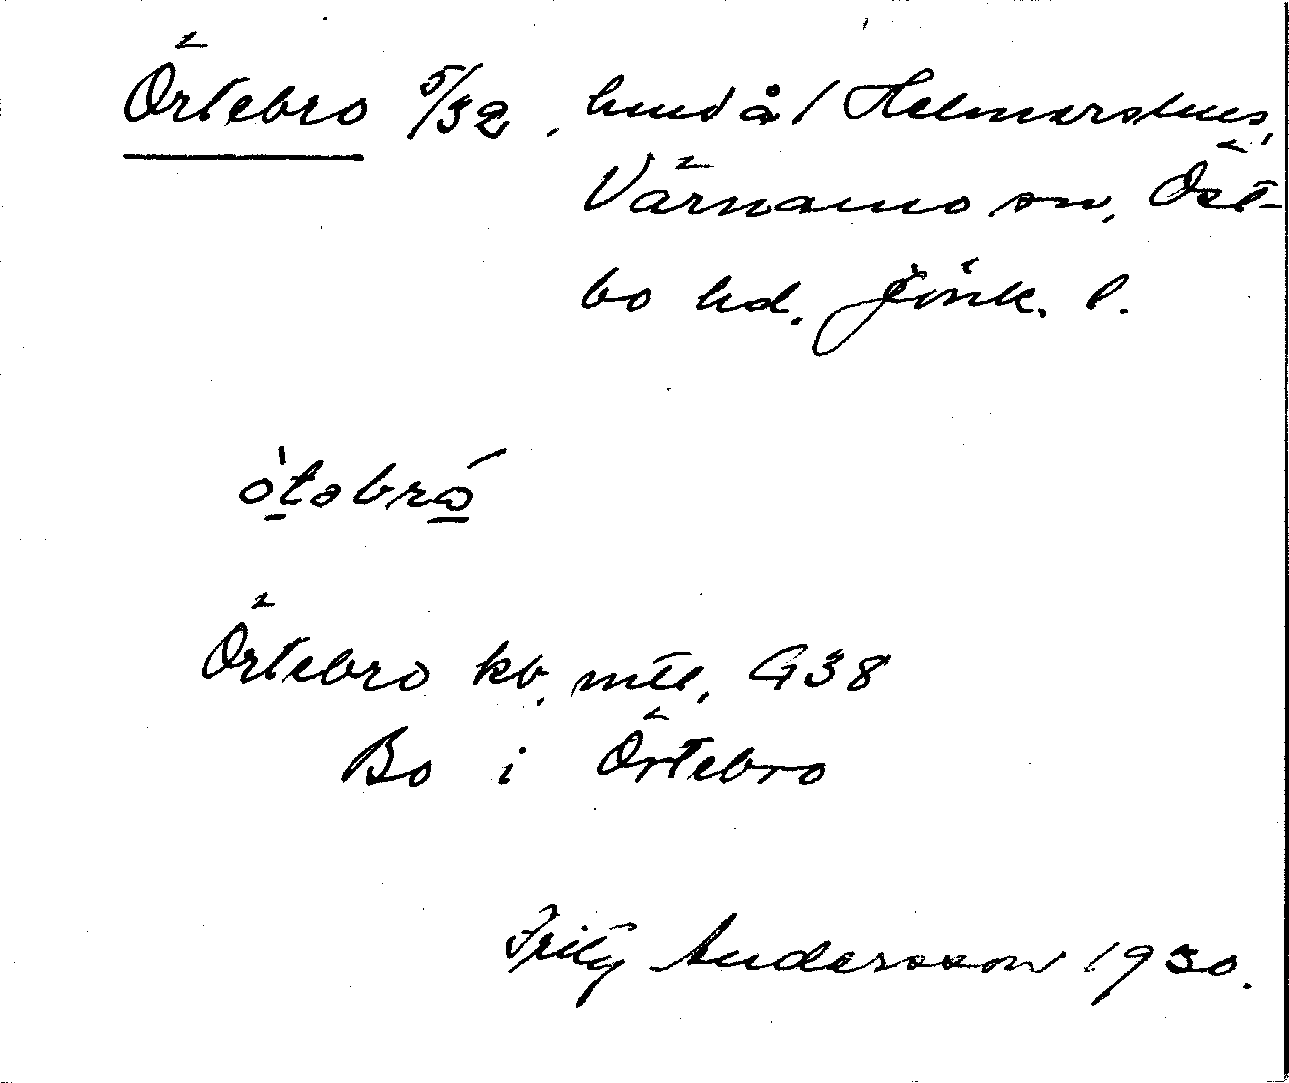 Örtebro 5/32, hmd å/ Helmershus,
Värnamo sn, Öst-
bo hd. Jönk. l.
òtabró
Örtebro kb, mtl, G38
Bo i Örtebro
Fritz Andersson 1930.